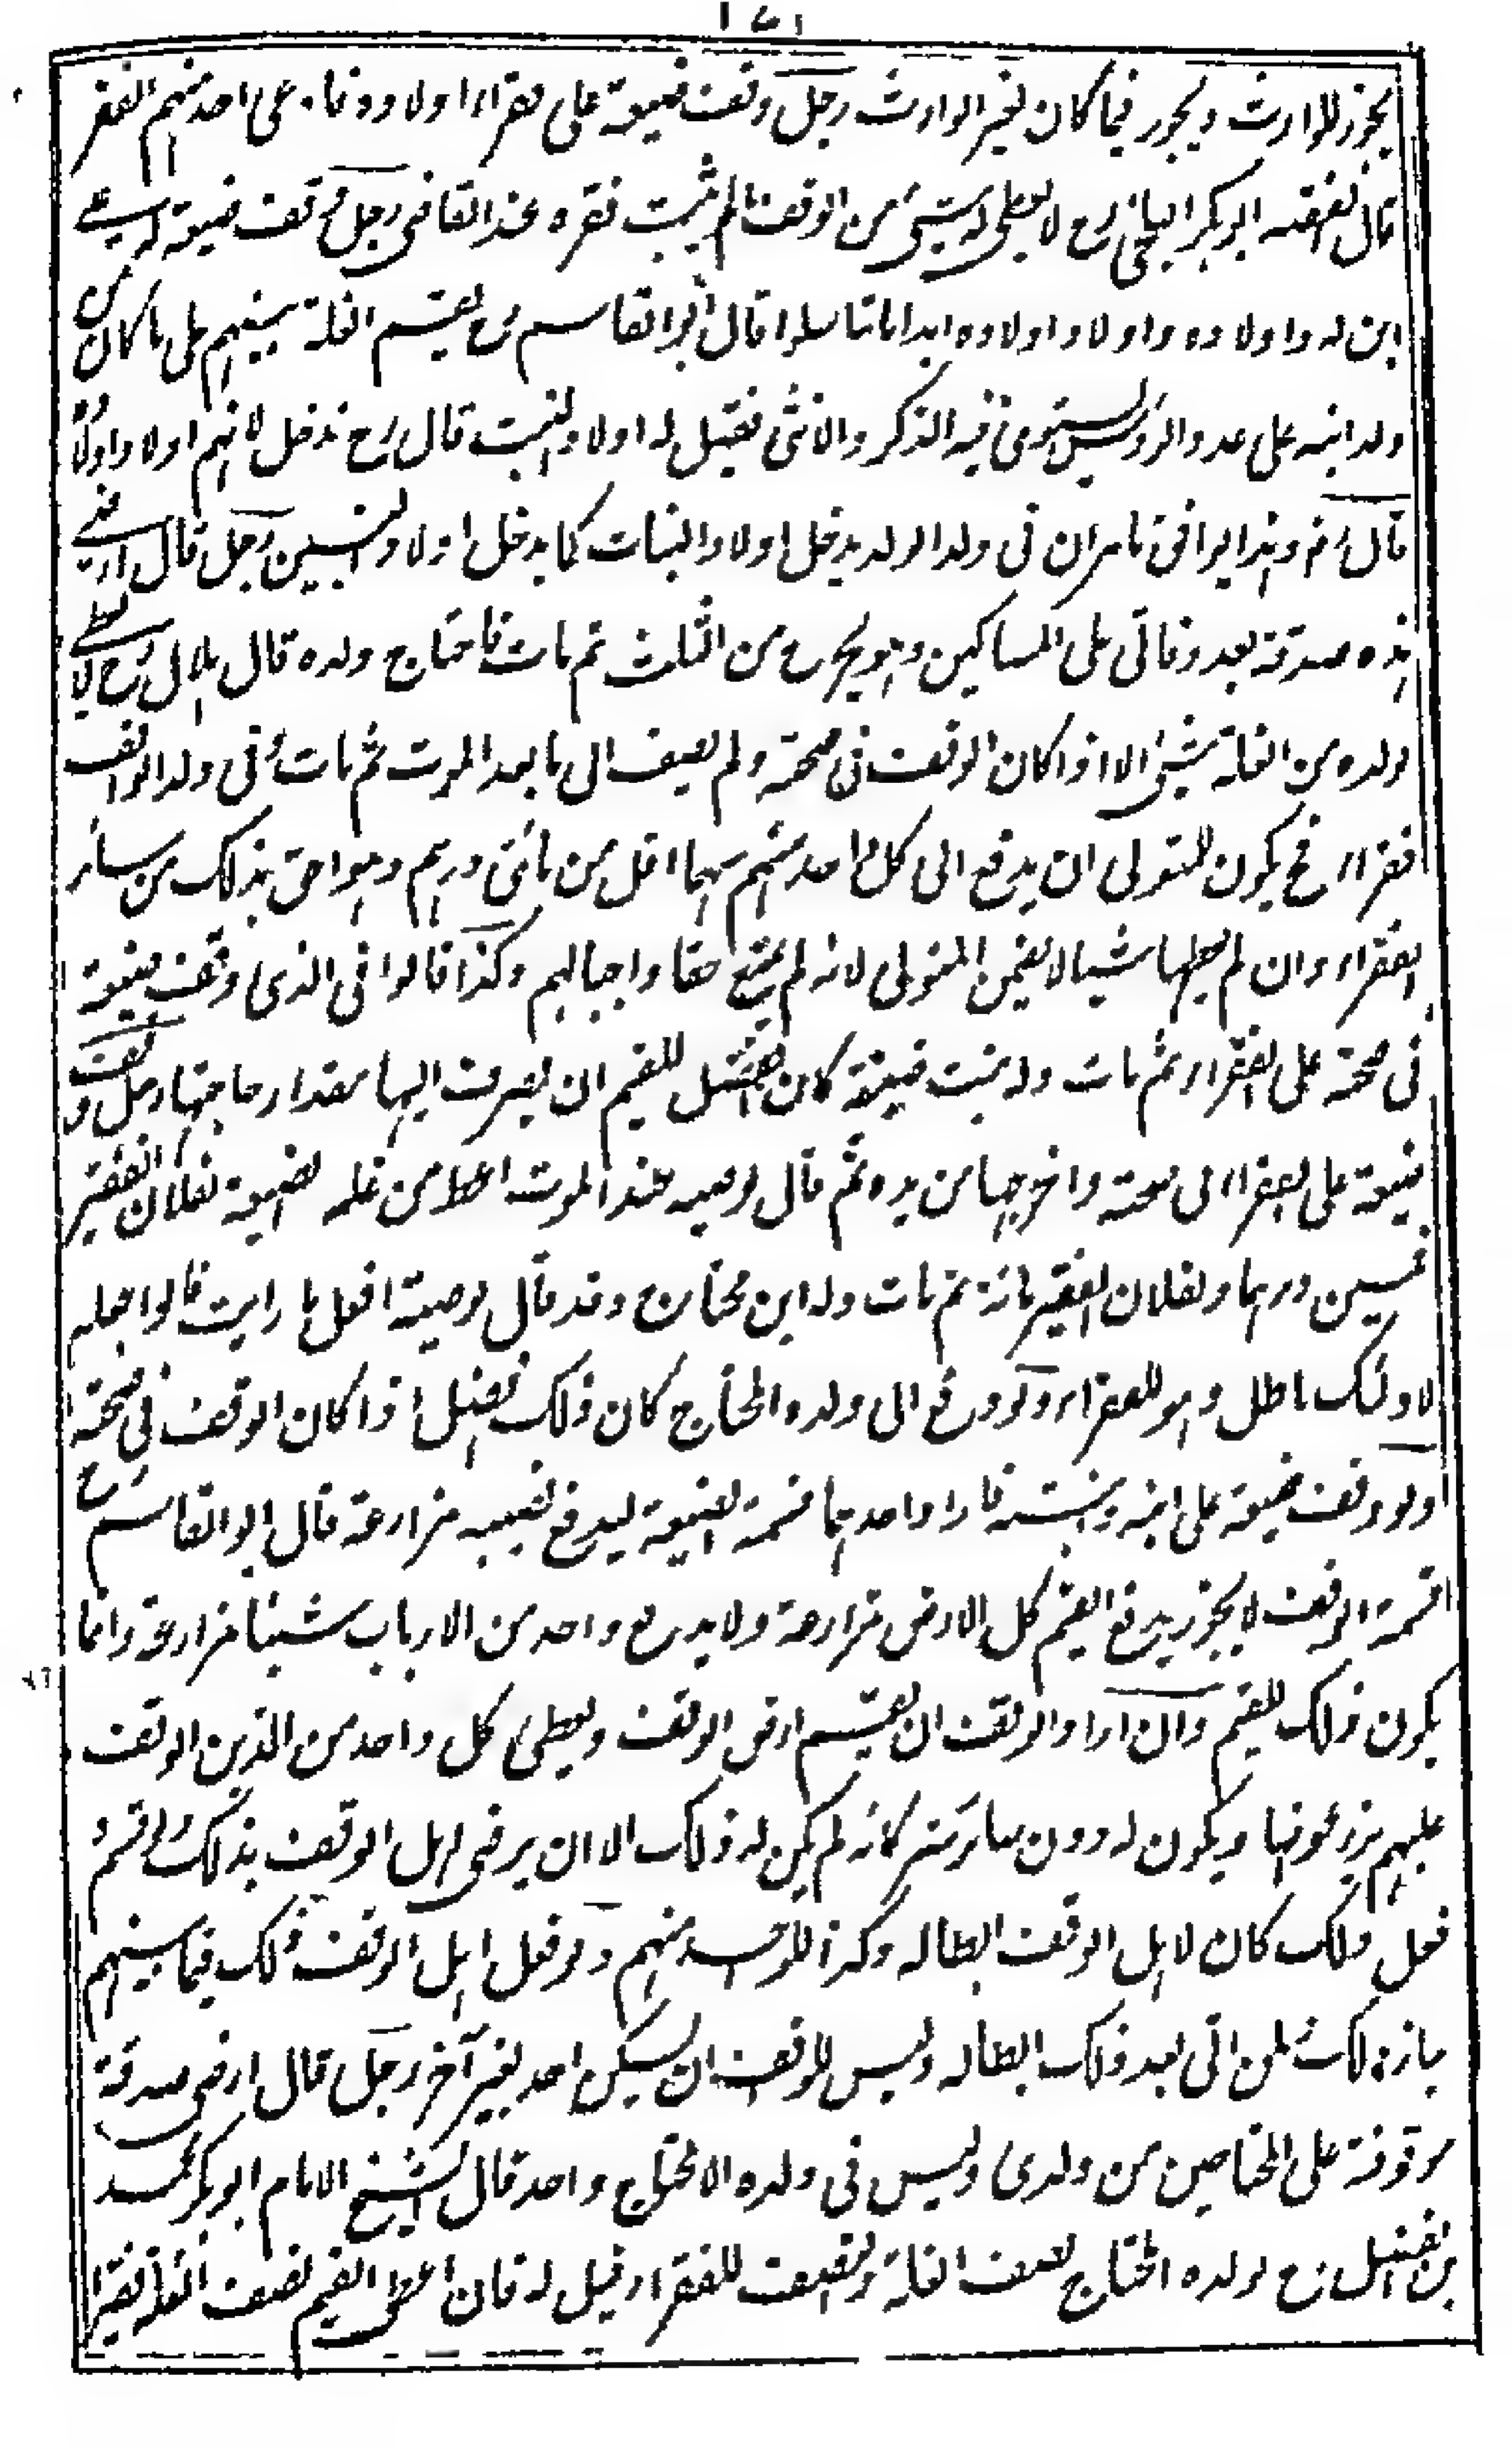 يجوز للوارث ويجوز فيما كان لغير الوارث رجل وقف ضيعة على فقراء اولاده فادعى احد منهم الفقر
قال الفقيه ابو بكر البلخى رح لا يعطى له شيئ من الوقف ما لم يثبت فقره عند القاضى رجل وقف ضيعة له على
ابن له واولاده واولاد اولاده ابدا ما تناسلوا قال ابو القاسم رح يقسم الغلة بينهم على ما كان من
ولد ابنه على عدد الرؤس يستوى فيه الذكر والانثى فقيل له اولاد البنت قال رح تدخل لانهم اولاد اولاده
قال رض وهذا يوافق ما مر ان فى ولد الولد يدخل اولاد البنات كما يدخل اولاد البنين رجل قال ارضى
هذه صدقة بعد وفاتى على المساكين وهو يخرج من الثلث ثم مات فاحتاج ولده قال هلال رح لا يعطى
ولده من الغلة شيئ الا اذا كان الوقف فى صحته ولم يضف الى ما بعد الموت ثم مات وفى ولد الواقف
فقراء فح يكون للمتولى ان يدفع الى كل واحد منهم سهما اقل من مائتى درهم وهو احق بذلك من سائر
الفقراء وان لم يعطها شيئا لا يضمن المتولى لانه لم يمنع حقا واجبا لهم وكذا قالوا فى الذى وقف ضيعة
فى صحته على الفقراء ثم مات وله بنت ضعيفة كان الافضل للقيم ان يصرف اليها مقدار حاجتها رجل وقف
ضيعة على الفقراء فى صحته واخرجها من يده ثم قال لوصيه عند الموت اعط من غلة الضيعة لفلان الفقير
خمسين درهما ولفلان الفقير مائة ثم مات وله ابن محتاج وقد قال لوصيه افعل ما رايت قالوا جعله
لاولئك باطل وهو للفقراء ولو دفع الى ولده المحتاج كان ذلك افضل اذا كان الوقف فى صحته
ولو وقف ضيعة على ابنه وبنته فاراد احدهما قسمة الضيعة ليدفع نصيبه مزارعة قال ابو القاسم رح
قسمة الوقف لا يجوز يدفع القيم كل الارض مزارعة ولا يدفع واحد من الارباب شيئا مزارعة وانما
يكون ذلك للقيم وان اراد الواقف ان يقسم ارض الوقف ويعطى كل واحد من الذين الوقف
عليهم يزرعونها ويكون له دون سائر شركائه لم يكن له ذلك الا ان يرضى اهل الوقف بذلك ولو قسم
فعل ذلك كان لاهل الوقف ابطاله وكذا للواحد منهم ولو فعل اهل الوقف ذلك فيما بينهم
جاز ذلك ولمن ابى بعد ذلك ابطاله وليس للواقف ان يسكن احد بغير آخر رجل قال ارضى صدقة
موقوفة على المحتاجين من ولدى وليس فى ولده الا محتاج واحد قال الشيخ الامام ابو بكر محمد
بن الفضل رح لولده المحتاج نصف الغلة والنصف للفقراء قيل له فان اعطى القيم نصف الغلة فقيرا